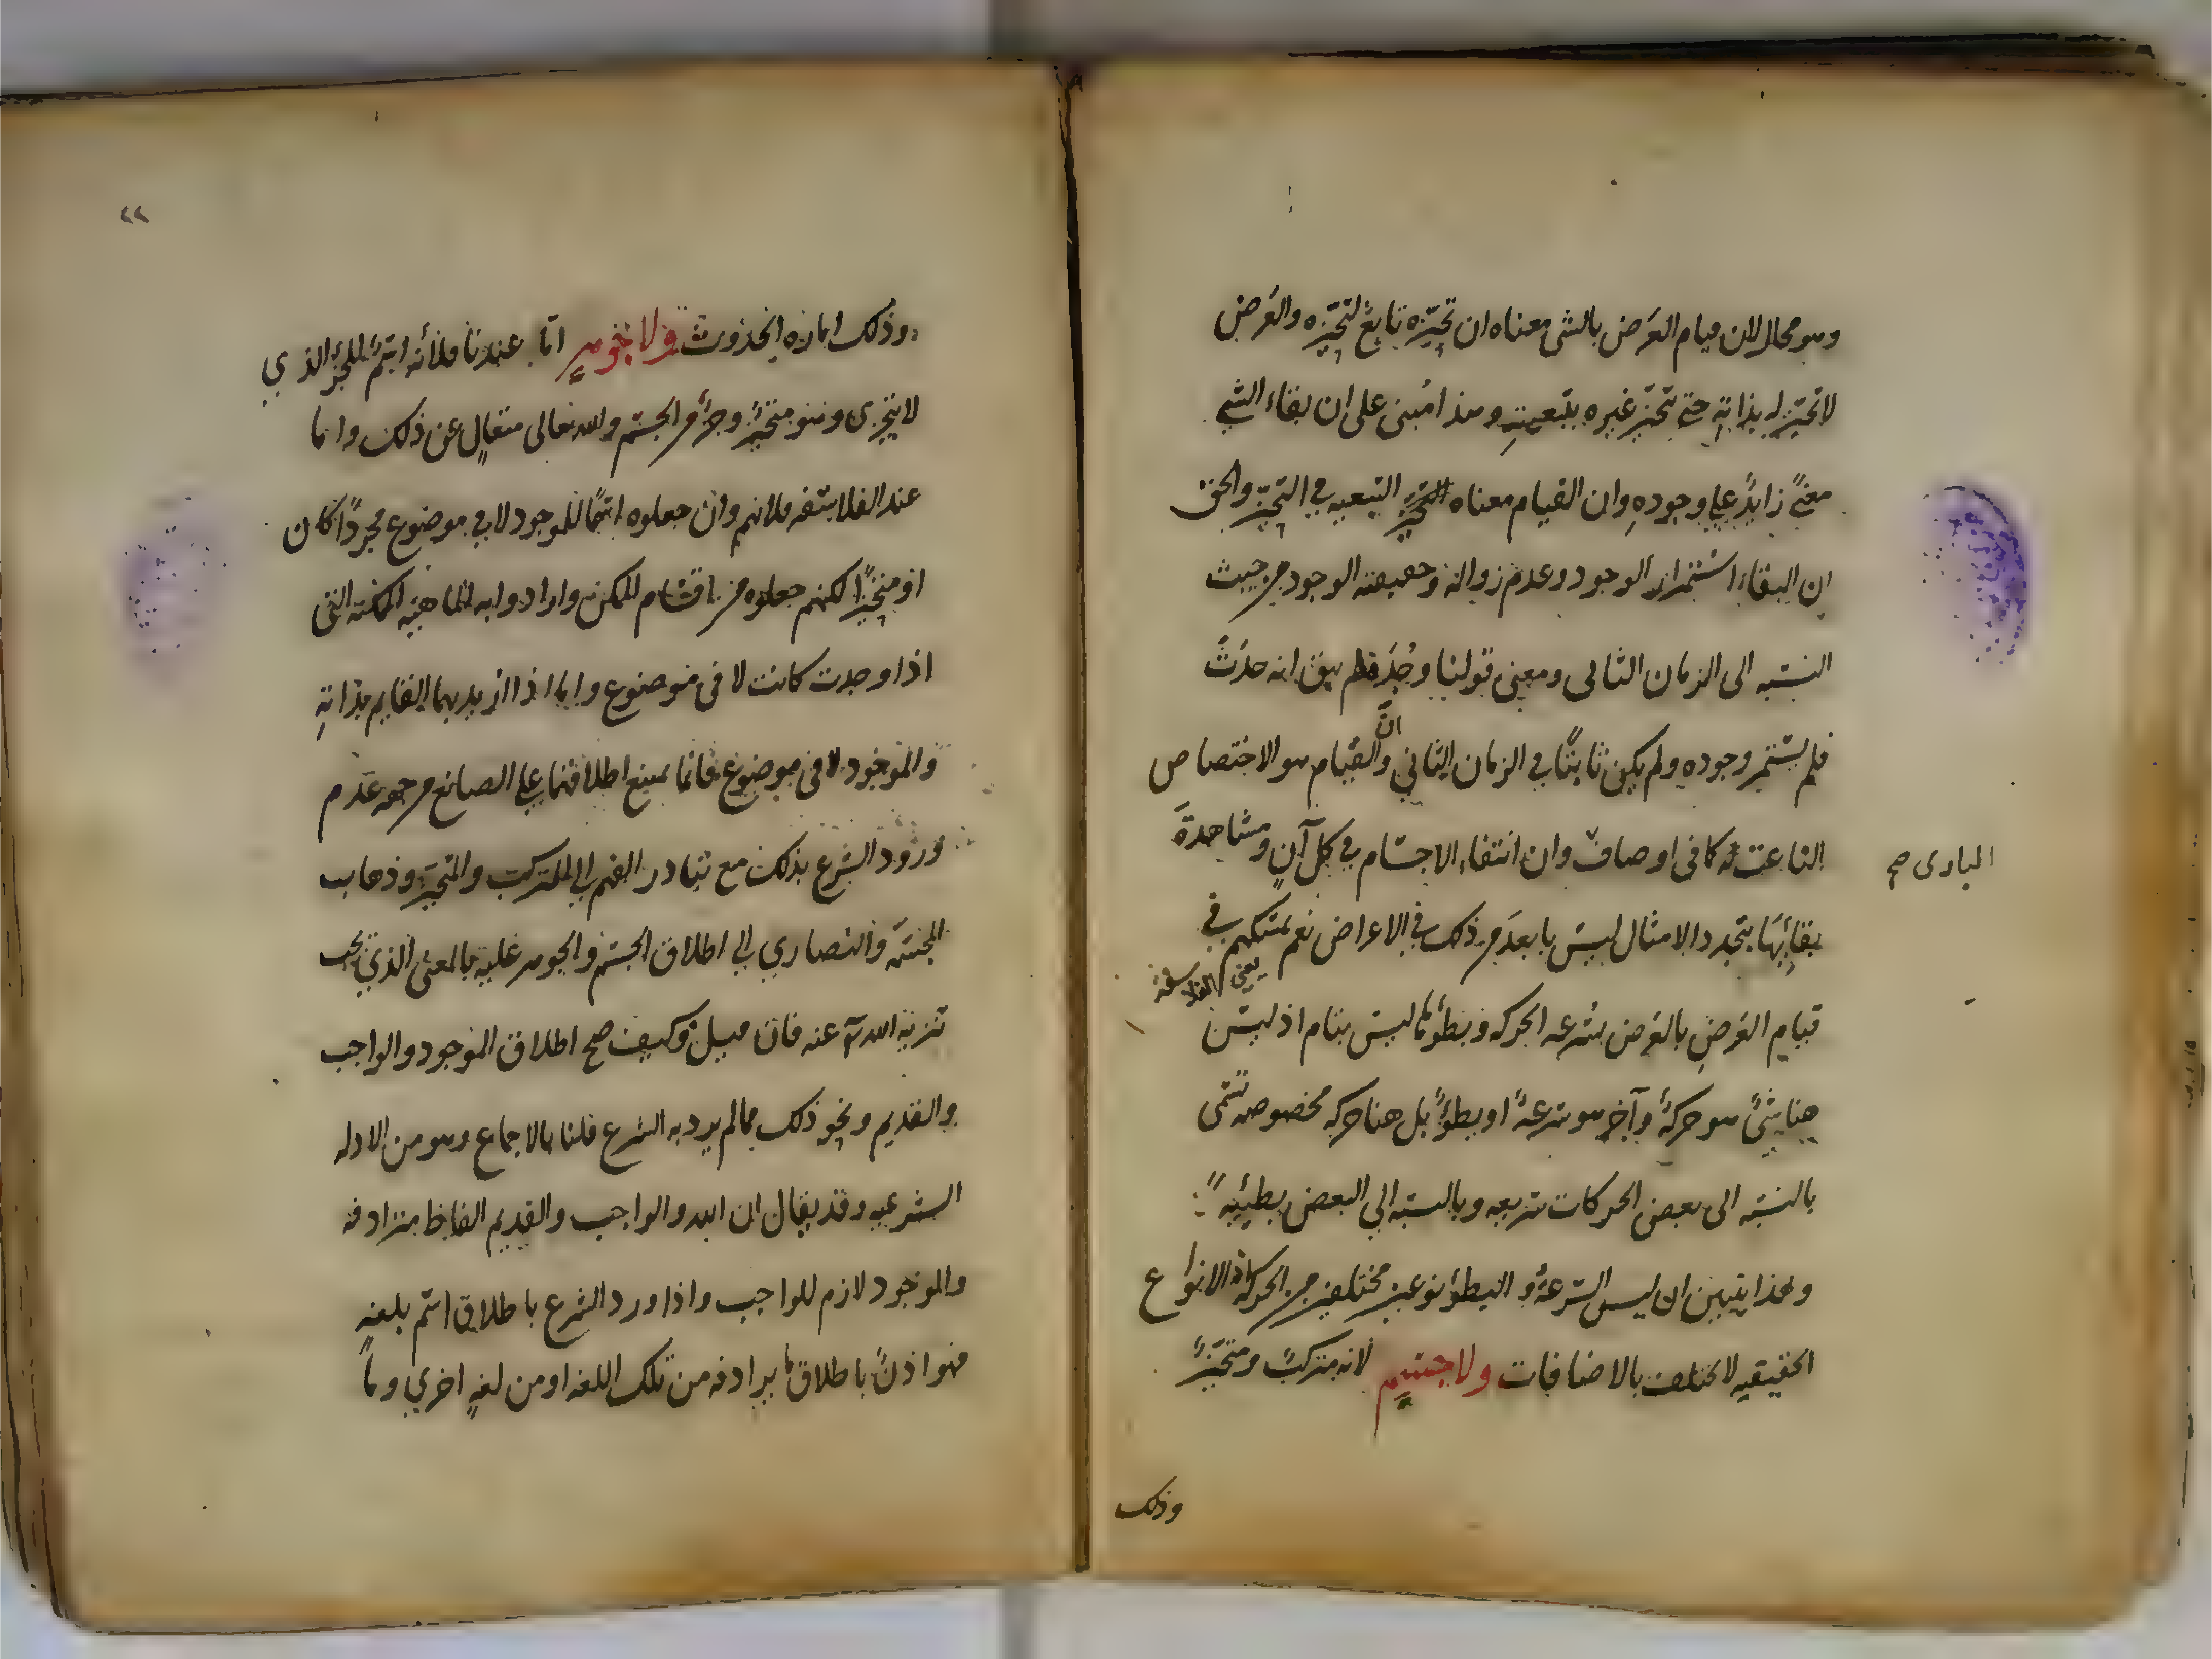 وهو محال لان قيام العَرَض بالشى معناه ان تحيّزه تابعٌ لتحيّزه والعَرَض
لا تحيّز له بذاتهِ حتى يتحيّز غيره بتبعيتهِ وهذا مُبنى على ان بقاء الشي
معنًي زايدٌ علي وجودهِ وان القيام معناه التبعيه في التحيّز والحق
ان البقاء استمرار الوجود وعدم زواله وحقيقته الوجود من حيث
النسبه الى الزمان الثانى ومعنى قولنا وُجِدَ فلم يبق انه حدَثَ
فلم يستمر وجوده ولم يكن ثابتًا في الزمان الثاني وانّ القيام هو الاختصاص
الناعت له كما فى اوصاف وان انتفاء الاجسام في كل آنٍ ومشاهدةَ
المبادى صح
بقائِهَا بتجدد الامثال ليس بابعدَ من ذلك في الاعراض نعم تمسّكهم في
يعني الفلاسفة
قيام العَرَضِ بالعَرَض بسُرعه الحركه وبطوئها ليس بتام اذ ليس
هنا شئٌ هو حركةٌ وآخر هو سرعةٌ او بطؤٌ بل هنا حركه مخصوصه تسمّى
بالنسبه الى بعض الحركات سريعه وبالنسبه الي البعض بطيئةً
وبهذا يتبين ان ليس السّرعةُ والبطؤ نوعين مختلفين من الحركه اذ الانواع
الحقيقيه لا تختلف بالاضافات ولا جسمٍ لانه متركبٌ ومتحيّزٌ
وذلك
٢٢
وذلك امارة الحدوث ولا جوهرٍ امّا عندنا فلأنه اسمٌ للجزء الذي
لا يتجزى وهو متحيّزٌ وجزءٌ من الجسم والله تعالى متعالٍ عن ذلك واما
عند الفلاسفه فلانهم وان جعلوه اسمًا للموجود لا في موضوع مجردًا كان
او متحيزًا لكنهم جعلوه من اقسام الممكن وارادوا به الماهيّه الممكنه التى
اذا وجدت كانت لا فى موضوع واما اذا اريد بهما القايم بذاتهِ
والموجود لا فى موضوع فانما يمتنع اطلاقهما على الصانع من جهه عدم
ورود الشرع بذلك مع تبادر الفهم الى المتركب والمتحيّز وذهاب
المجسّمه والنصاري الي اطلاق الجسم والجوهر عليه بالمعنى الذي يجب
تنزيه الله تعَ عنه فان قيل وكيف صح اطلاق الموجود والواجب
والقديم ونحو ذلك مما لم يرد به الشرع قلنا بالاجماع وهو من الادله
الشرعيه وقد يقال ان الله والواجب والقديم الفاظ مترادفه
والموجود لازم للواجب واذا ورد الشرع باطلاق اسم بلغهٍ
فهو اذنٌ باطلاق ما يرادفه من تلك اللغه او من لغهٍ اخري وما